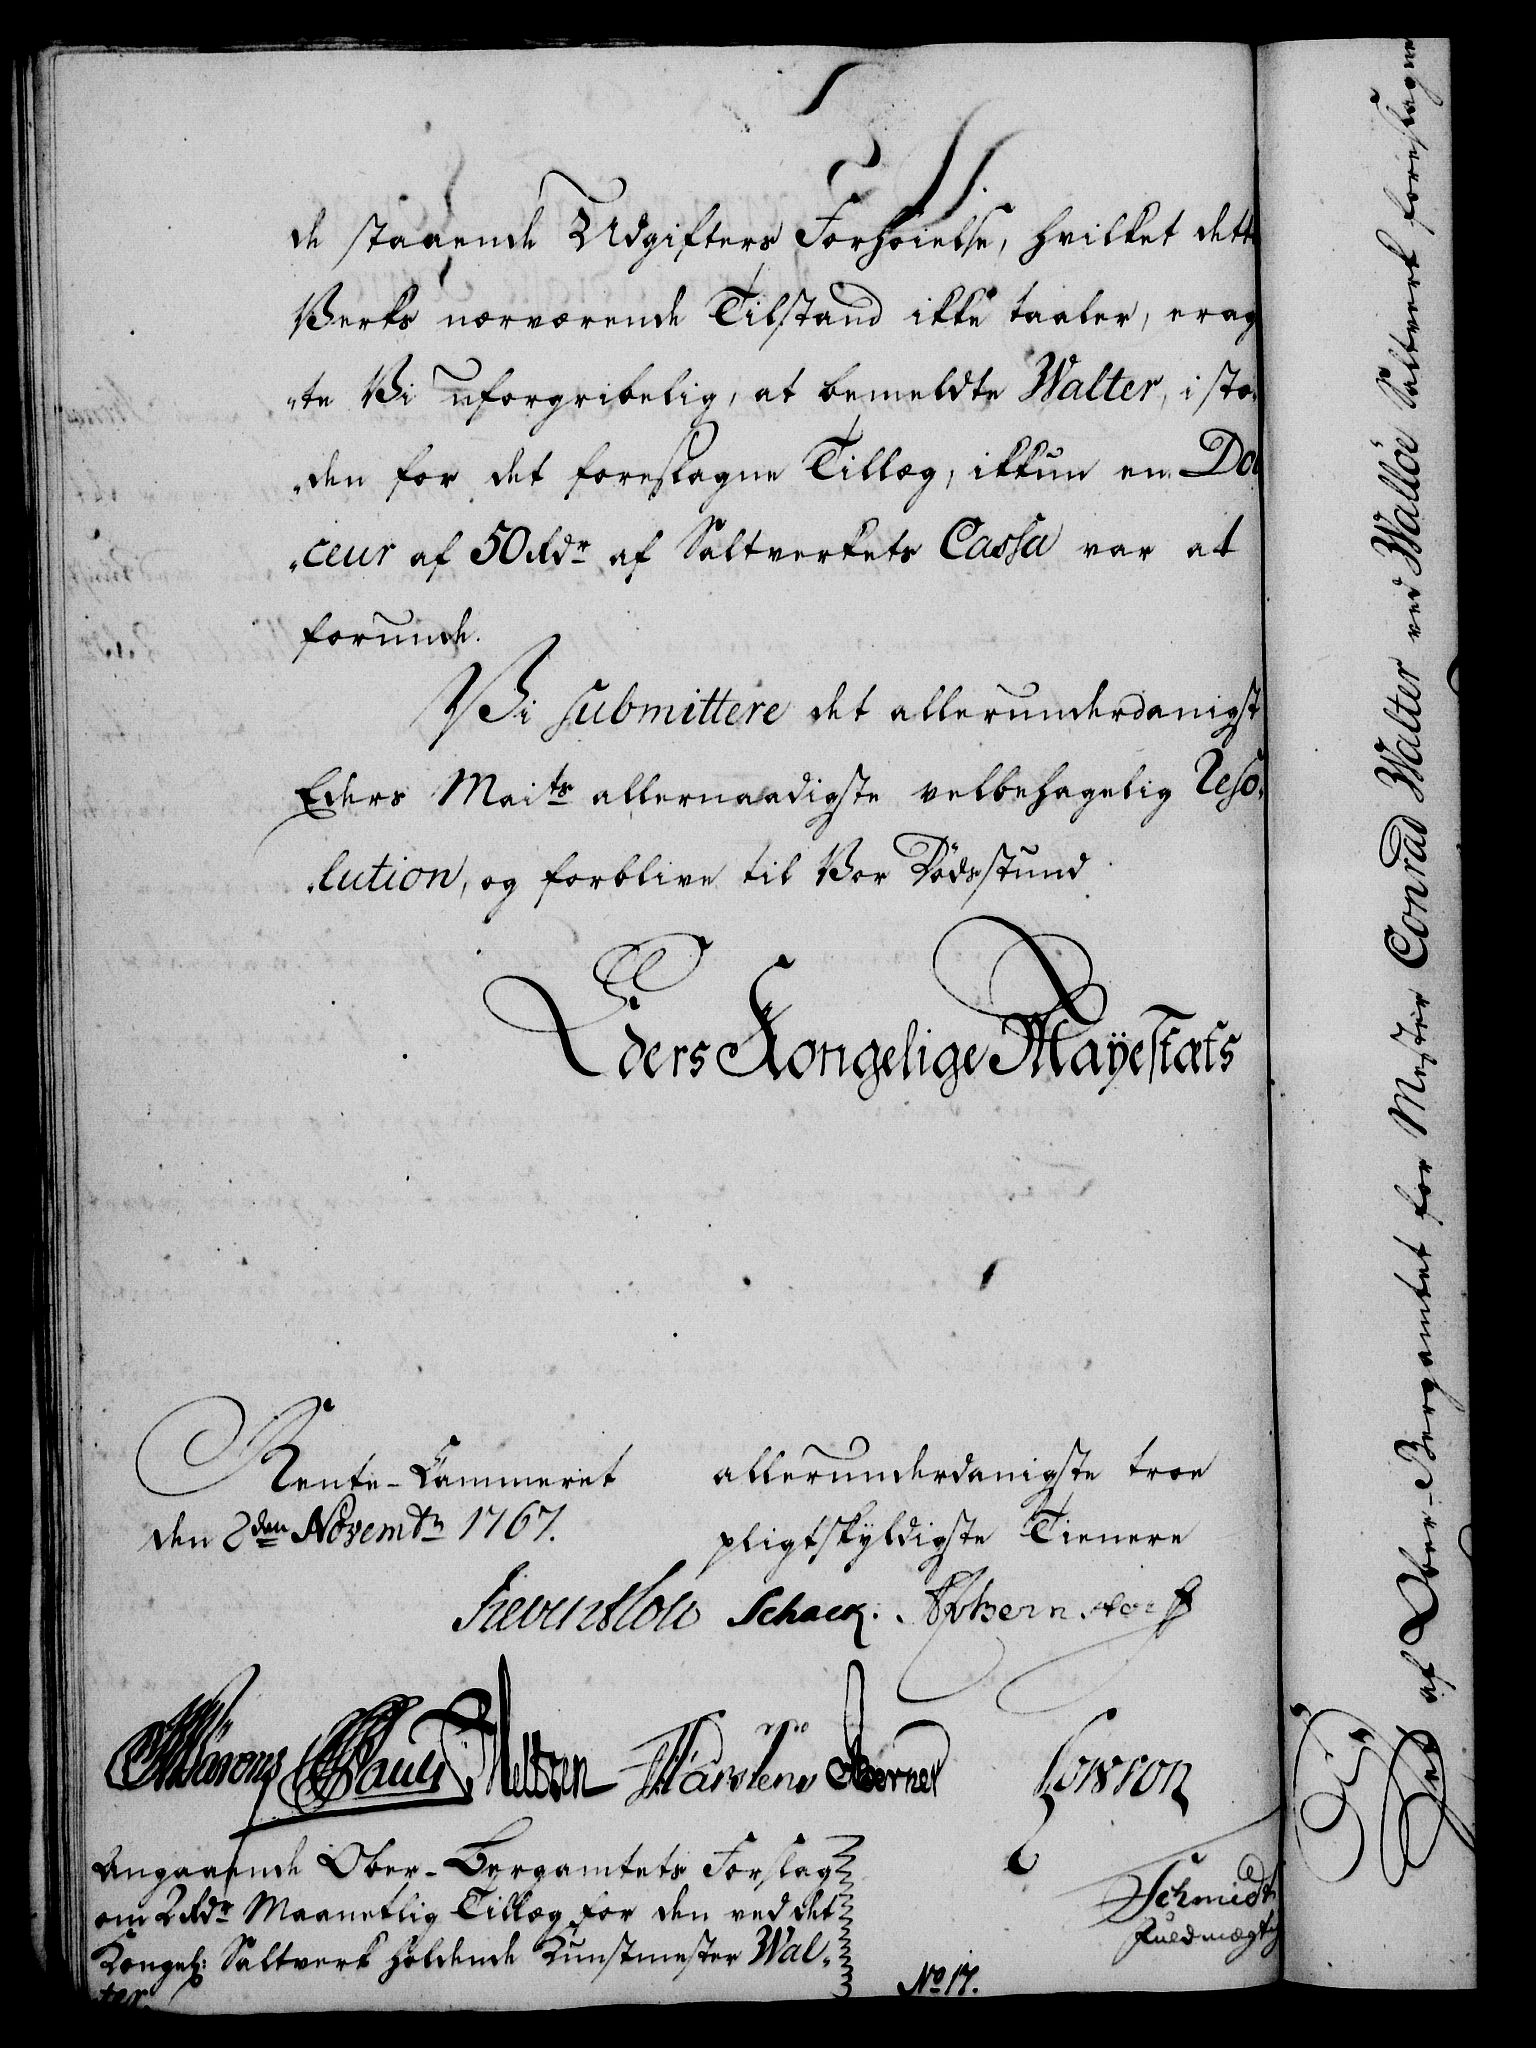 de staaende Udgifters Forhøielse, hvilket dette
Verks nærværende Tilstand ikke taaler, erag
„te Vi uforgribelig, at bemeldte Walter, i stæ„
„den for det foreslagne Tillæg, ikkun en Dou
„ceur af 50 Rdr af Saltverkets Cassa var at
forunde.
Vi submittere det allerunderdanigst
Eders Maits allernaadigste velbehagelig Reso„
„lution, og forblive til Vor Dödsstund
Eders Kongelige Mayestæts
Rente-Cammeret
den 2den Novembr 1767.
allerunderdanigste troe
pligtskyldigste Tienere
Reventlou Schack. Bernstorff
Pauli Meltzen Karstens Berner Lowson
Schmidt
Fuldmægtig
Angaaende Ober-Bergamtets Forslag
om 2 Rdr Maanetlig Tillæg for den ved det
Kongel: Saltverk holdende Kunstmester Wal„
ter.
No 17.
Det af Ober-Bergamtet for Mester Conrad Walter ved Walløe Saltverk foreslagne